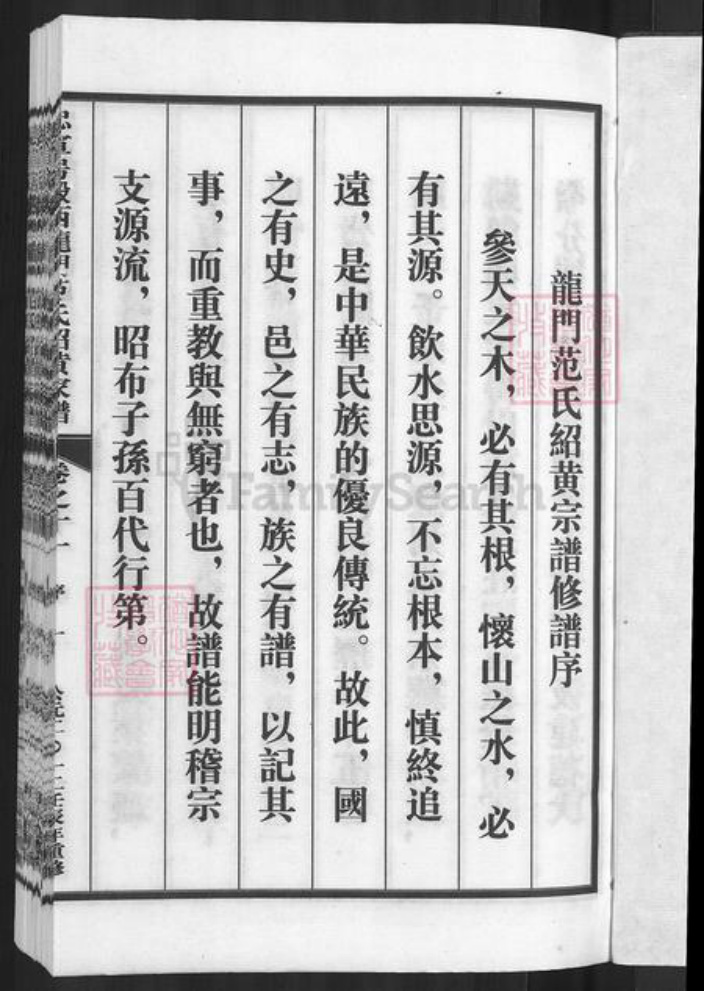 龍門范氏紹黄宗譜修譜序
參天之木，必有其根，懷山之水，必
有其源。飲水思源，不忘根本，慎終追
遠，是中華民族的優良傳統。故此，國
之有史，邑之有志，族之有譜，以記其
事，而重教與無窮者也，故譜能明稽宗
支源流，昭布子孫百代行第。
FamilySearch